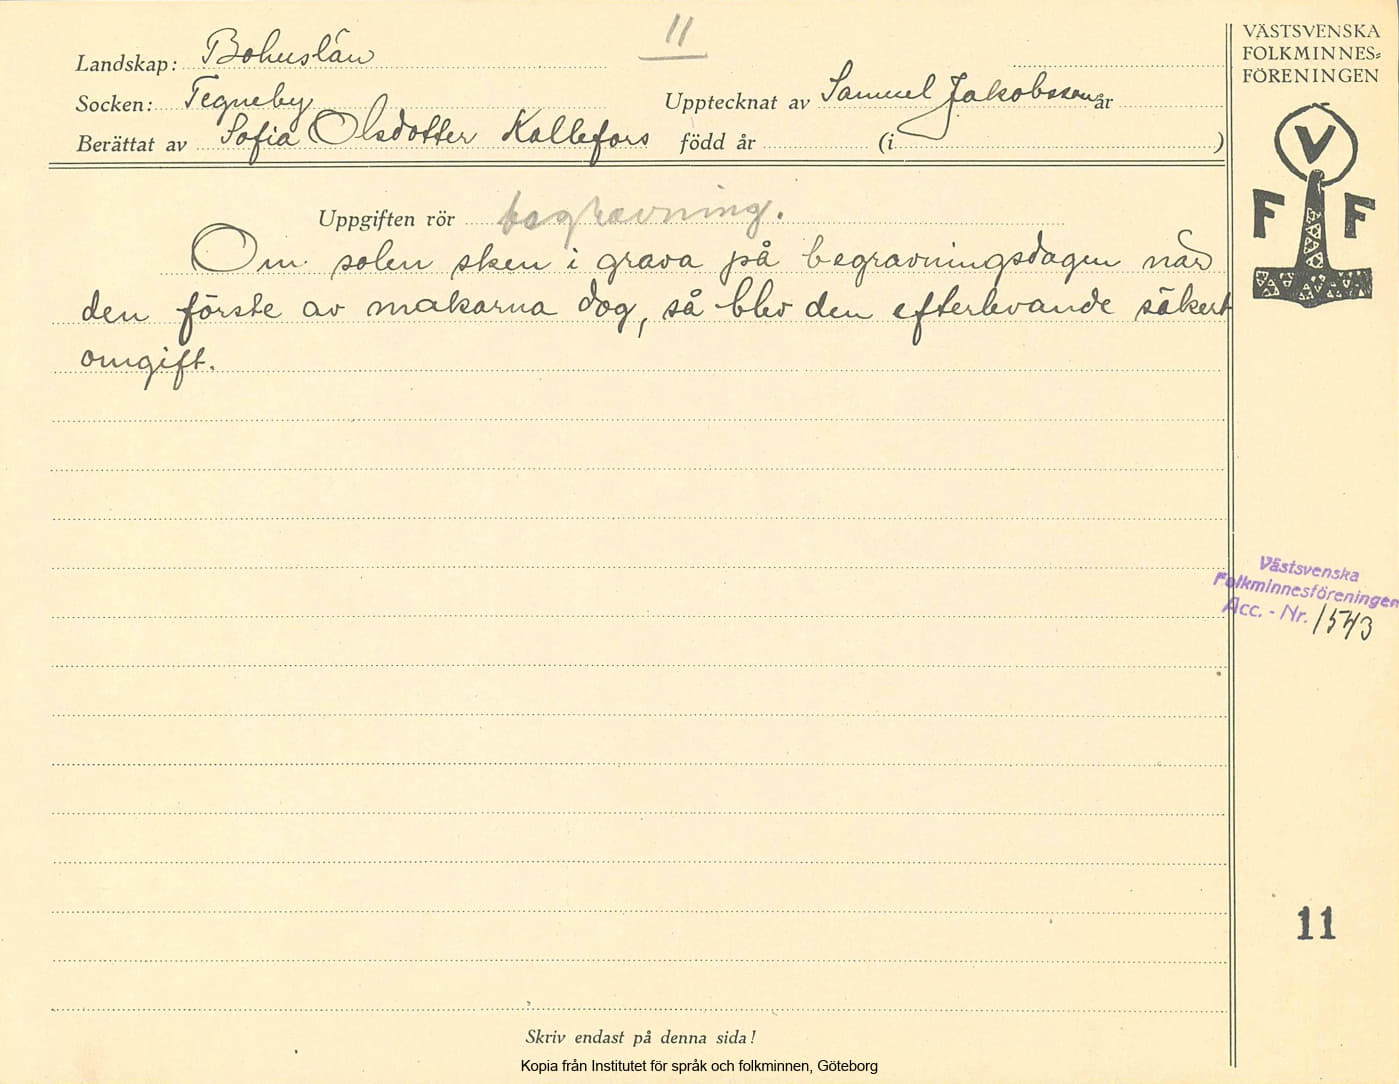 11
Landskap: Bohuslän
Socken: Tegneby
Upptecknat av Samuel Jakobsson år
Berättat av Sofia Olsdotter Kollefors född år (i )
Uppgiften rör begravning.
Om solen sken i grava på begravningsdagen när
den förste av makarna dog, så blev den efterlevande säkert
omgift.
Skriv endast på denna sida!
Kopia från Institutet för språk och folkminnen, Göteborg
VÄSTSVENSKA
FOLKMINNES=
FÖRENINGEN
V
F F
Västsvenska
Folkminnesföreningen
Acc. - Nr. 1543
11